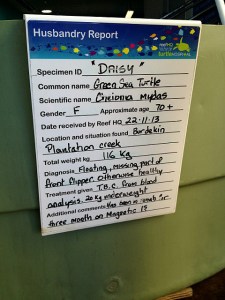 Husbandry Report
reef HQ
turtle HOSPITAL
Specimen ID "DAISY"
Common name Green Sea Turtle
Scientific name Chelonia Mydas
Gender F Approximate age 70+
Date received by Reef HQ 22-11-13
Location and situation found Burdekin
Plantation creek
Total weight kg 116 Kg
Diagnosis Floating, missing part of
front flipper. otherwise healthy
Treatment given T.B.C. from blood
analysis. 20kg underweight
Additional comments Has been in rehab for
three month on Magnetic Is